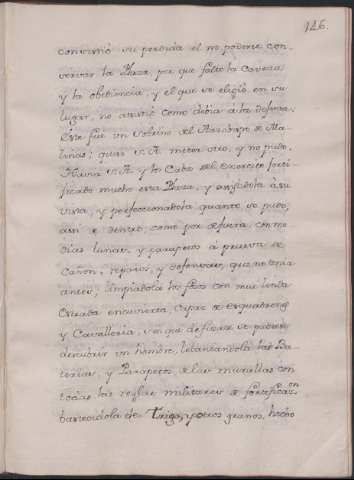 126.
convirtió su perdida el no poderse con
servar la Plaza, por que faltó la Caveza,
y la obediencia, y el que se eligió en su
lugar, no asistió como devia á la defensa.
Este fué un sobrino del Arzobispo de Ma
linas; quiso S. A. meter otro, y no pudo,
Havia S. A. y los Cabos del Exercito forti
ficado mucho esta Plaza, y ampliadola á su
vista, y perfeccionadola quanto se pudo,
assi de dentro, como por defuera, con me
dias lunas, y parapetos á prueva de
Cañon, reparos, y defensores, que no tenia
antes, limpiadola los fosos con una linda
Estrada encuvierta, Capaz de esquadrones
y Cavalleria, sin que de fuera se pudiese
descubrir un hombre, levantandola las Ba
terias, y Parapetos de las murallas con
todas las reglas militares de fortificacion
basteciendola de Trigo, y otros granos, hecho